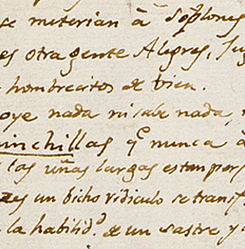 se meterian à soplones
es otra gente Alegres, ju
hombrecitos de bien.
oye nada ni sabe nada,
inchillas q.e nunca a
las uñas largas estan por
zes un bicho ridiculo se transf
la habilid.d de un sastre y